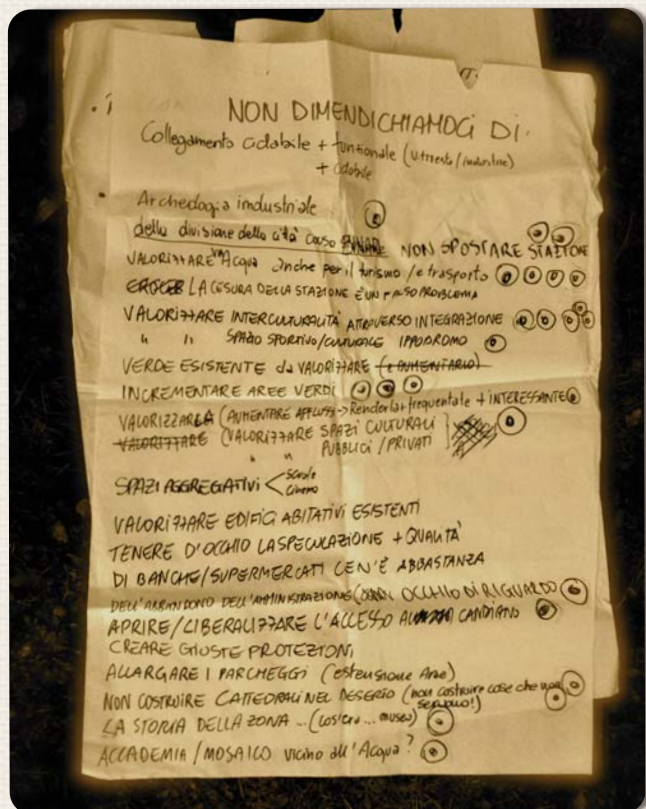 NON DIMENDICHIAMOCI DI:
Collegamento ciclabile + funzionale
+ ciclabile
Archeologia industriale
della divisione della città causo NON SPOSTARE STAZIONE
VALORIZZARE Acqua anche per il turismo / e trasporto
LA CESURA DELLA STAZIONE È UN FALSO PROBLEMA
VALORIZZARE INTERCULTURALITÀ ATTRAVERSO INTEGRAZIONE
" " SPAZIO SPORTIVO/CULTURALE IPPODROMO
VERDE ESISTENTE da VALORIZZARE (e AUMENTARLO)
INCREMENTARE AREE VERDI
VALORIZZARLA (AUMENTARE AFFLUSSI -> Renderla + frequentale + INTERESSANTE
VALORIZZARE (VALORIZZARE SPAZI CULTURALI
" " PUBBLICI / PRIVATI
SPAZI AGGREGATIVI < Scuole
Cinema
VALORIZZARE EDIFICI ABITATIVI ESISTENTI
TENERE D'OCCHIO LA SPECULAZIONE + QUALITÀ
DI BANCHE/SUPERMERCATI CE N'È ABBASTANZA
DELL'ABBANDONO DELL'AMMINISTRAZIONE ( OCCHIO DI RIGUARDO
APRIRE/LIBERALIZZARE L'ACCESSO AL CANDIANO
CREARE GIUSTE PROTEZIONI
ALLARGARE I PARCHEGGI (estensione Aree)
NON COSTRUIRE CATTEDRALI NEL DESERTO (non costruire cose che non
servono!)
LA STORIA DELLA ZONA ... (cos'era ... museo)
ACCADEMIA / MOSAICO vicino all'Acqua?